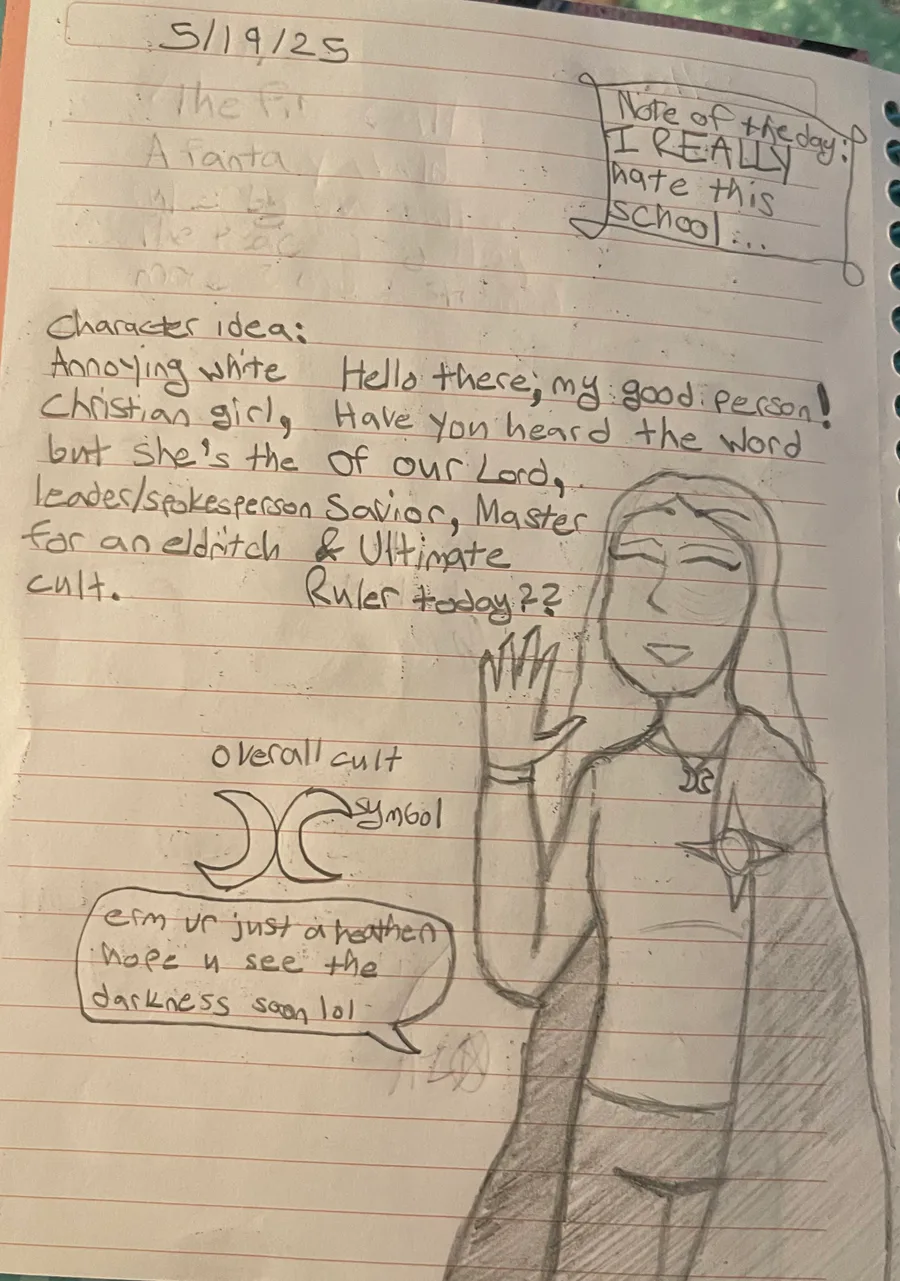 5/19/25
The Fir
A fanta
Note of the day:
I REALLY
hate this
school...
Character idea:
Annoying white
Christian girl,
but she's the
leader/spokesperson
for an eldritch
cult.
Hello there, my good person!
Have you heard the word
of our Lord,
Savior, Master
& Ultimate
Ruler today??
overall cult
symbol
erm ur just a heathen
hope u see the
darkness soon lol